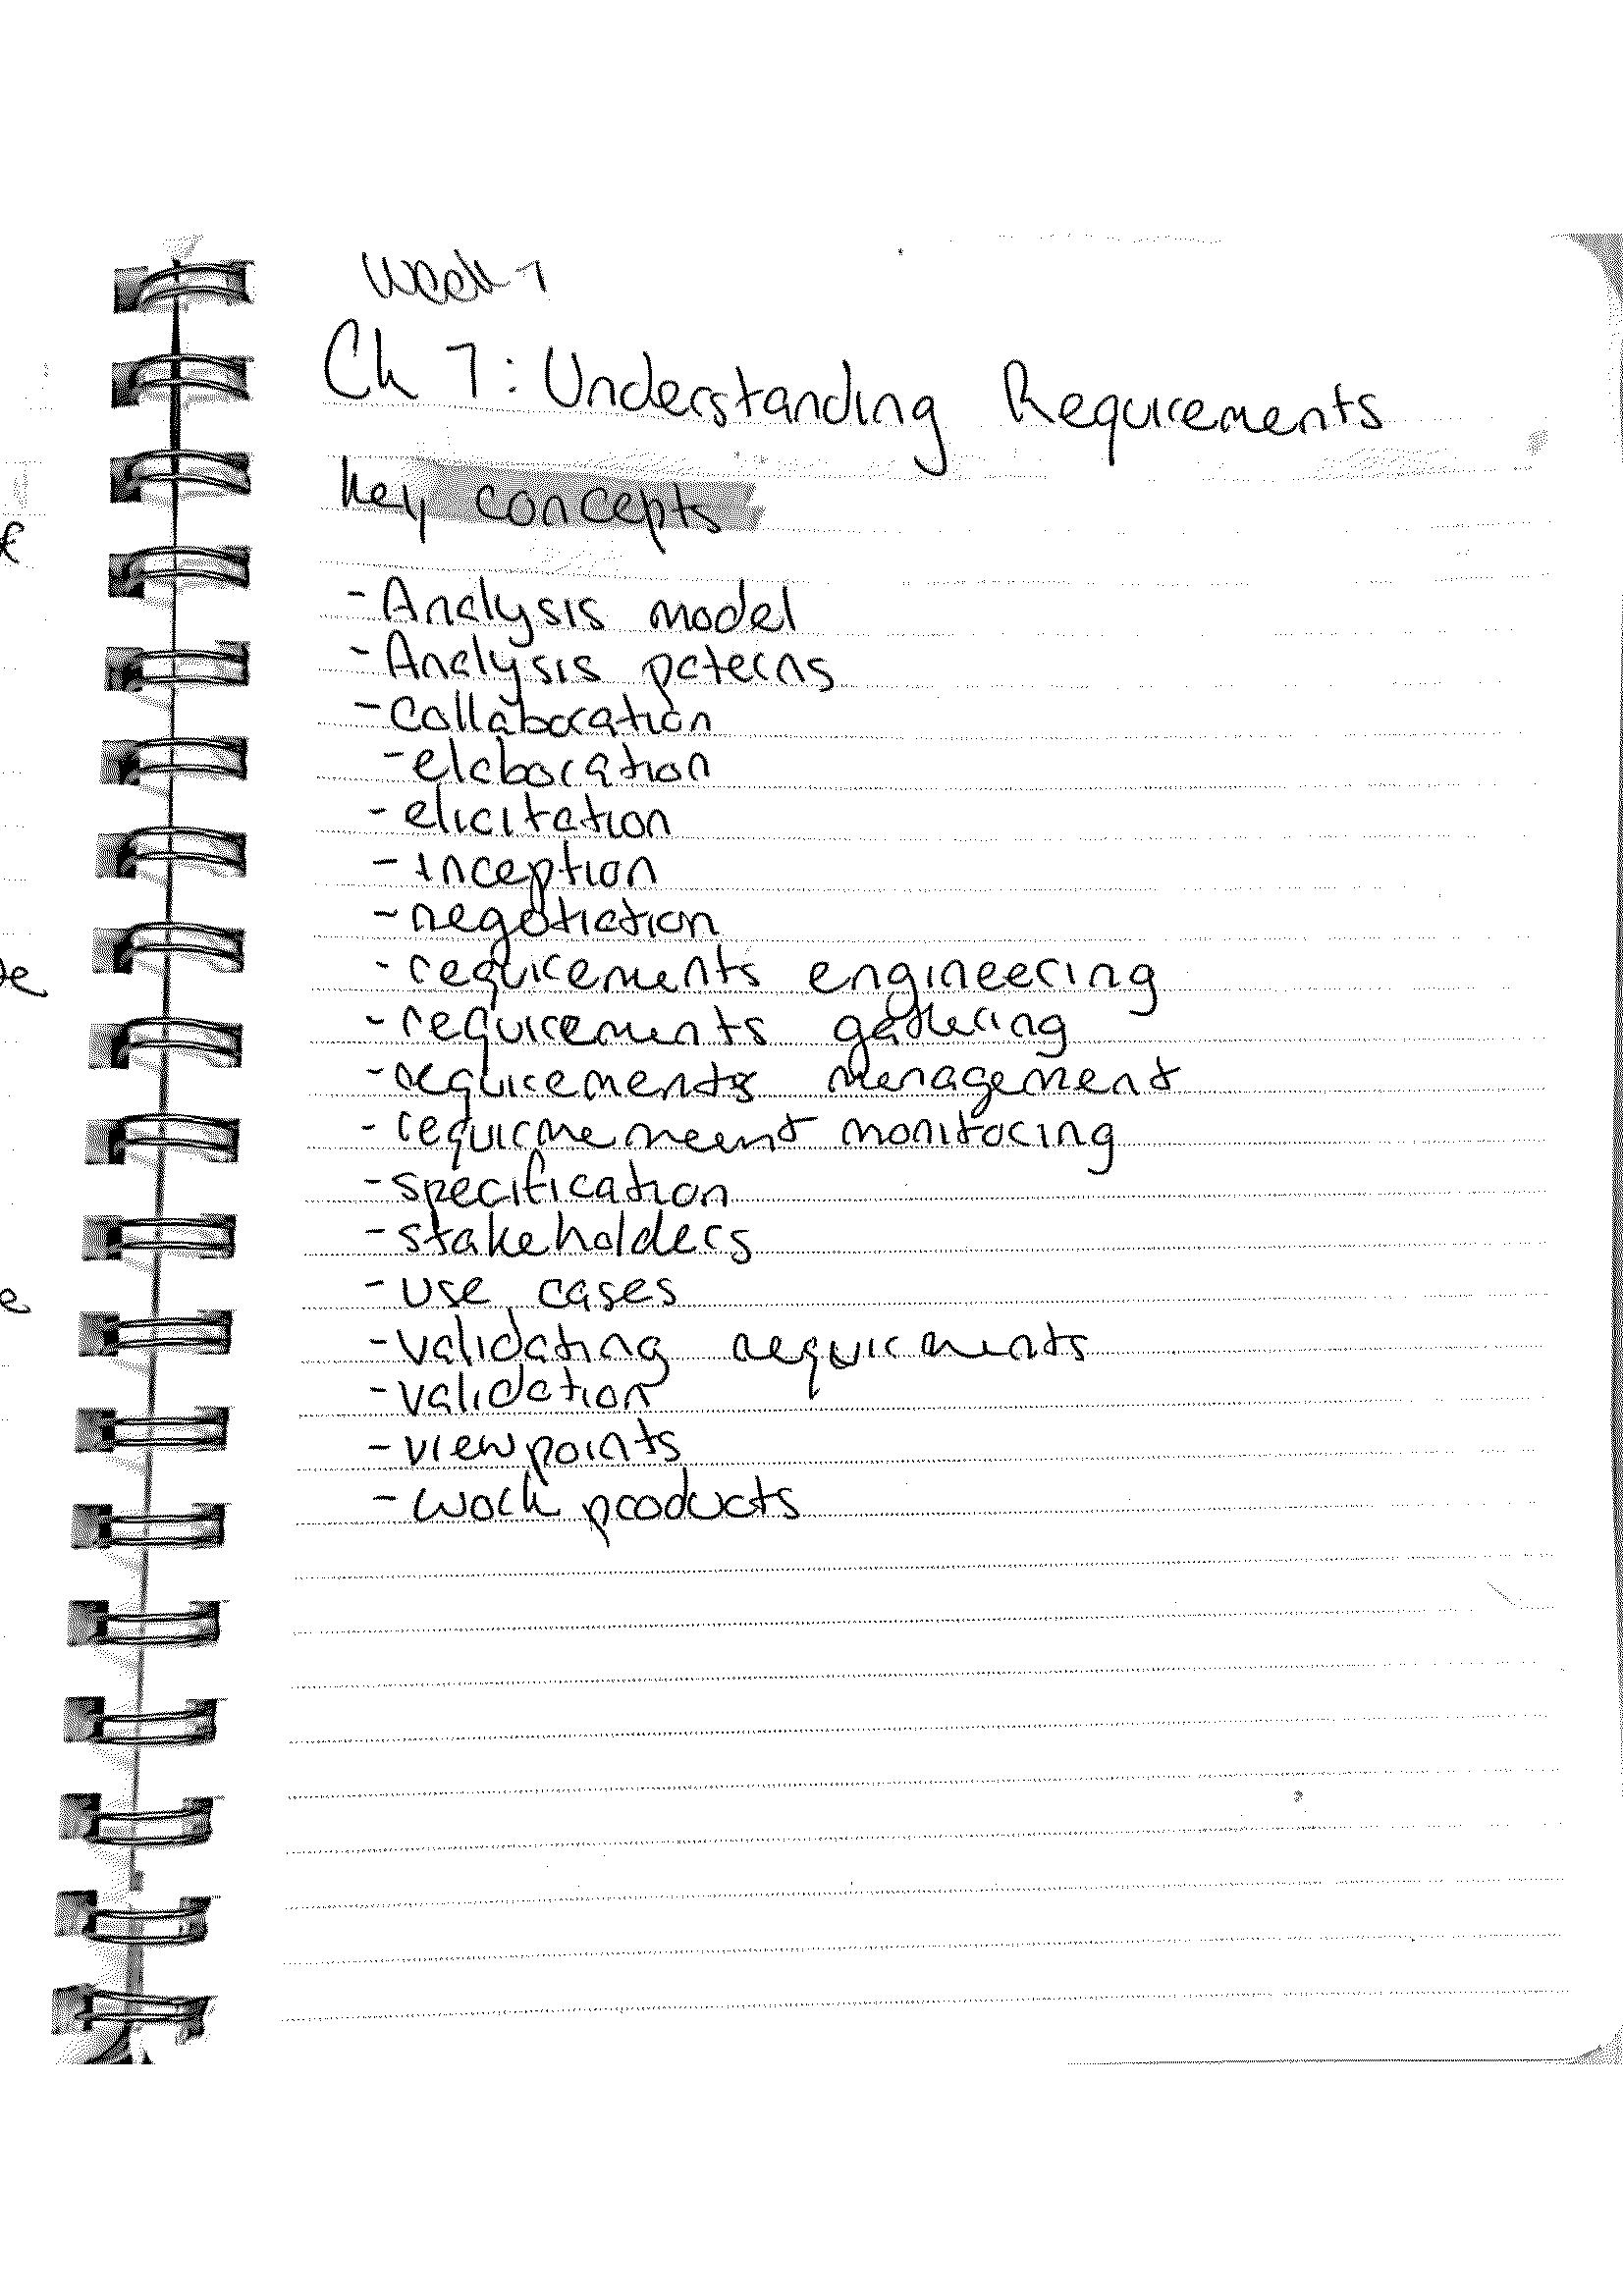 Week 7
Ch 7: Understanding Requirements
key concepts
- Analysis model
- Analysis paterns
- Collaboration
- elaboration
- elicitation
- inception
- negotiation
- requirements engineering
- requirements gathering
- requirements management
- requirmemeent monitoring
- specification
- stakeholders
- use cases
- validating requirments
- validation
- viewpoints
- work products